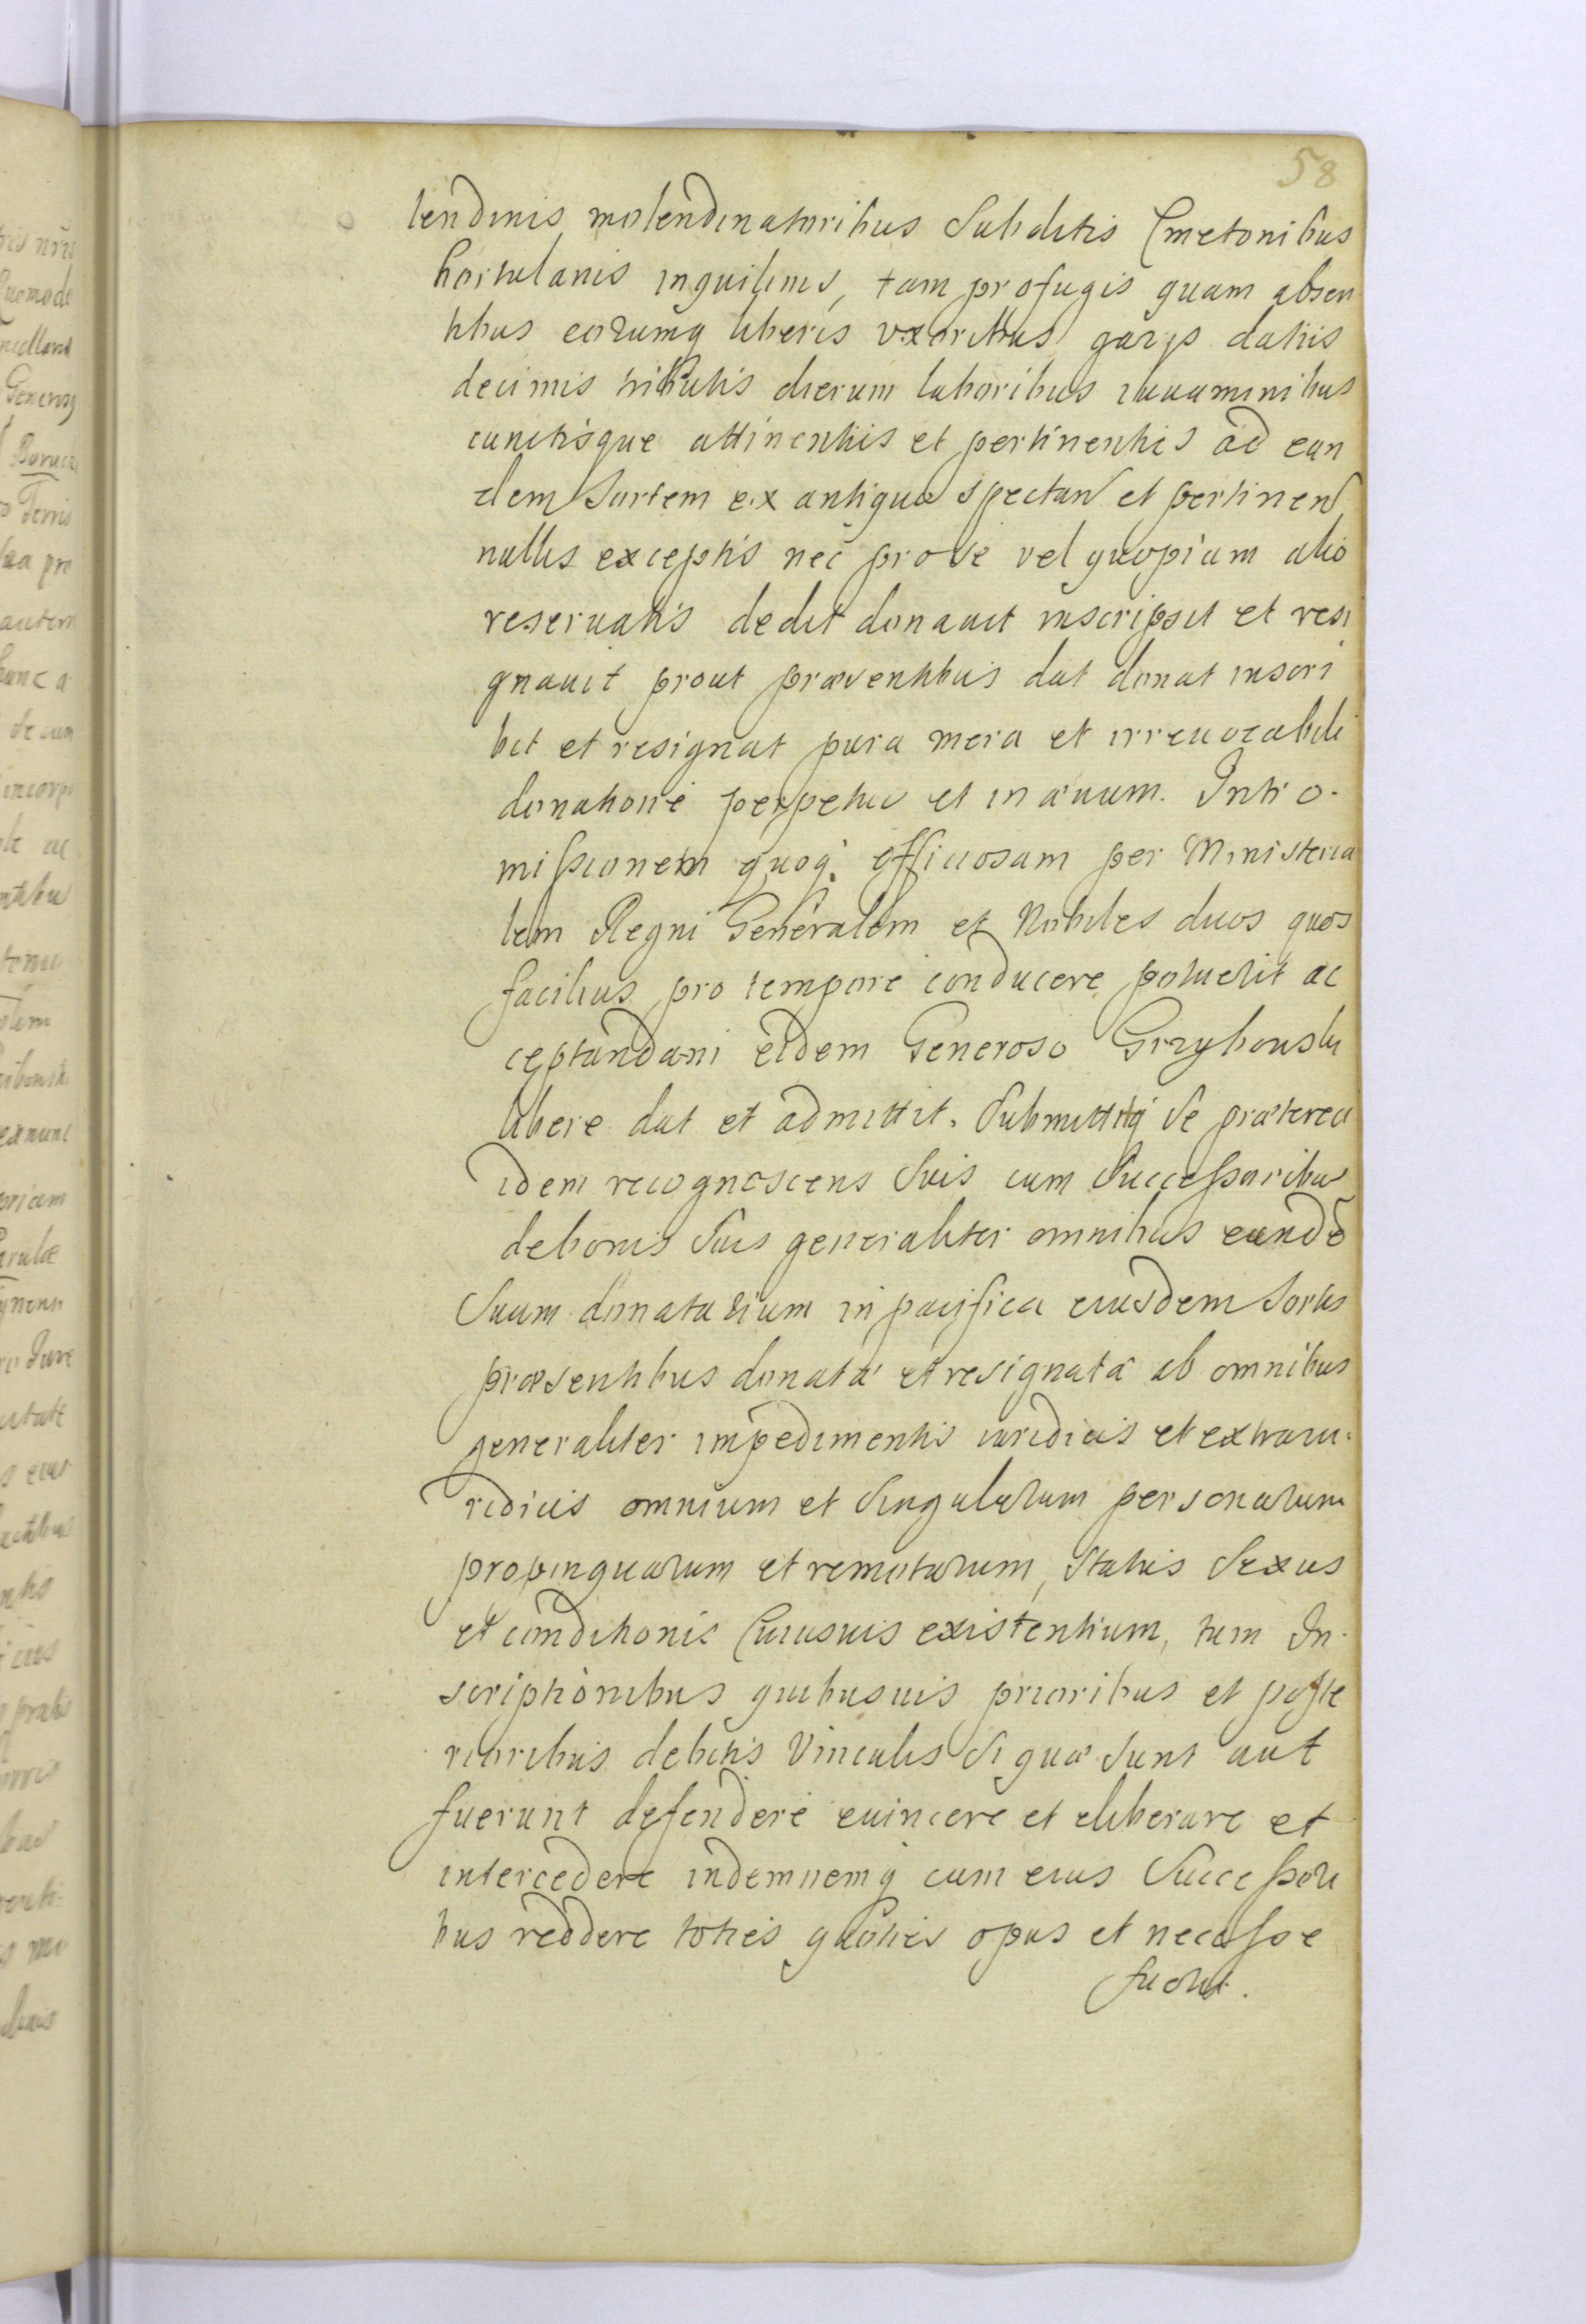 58
lendinis molendinatoribus Subditis Cmetonibus
hortulanis inquilinis, tam profugis quam absen
tibus eorumq liberis vxoribus gazys datiis
decimis tributis dierum laboribus iuuaminibus
cunctisque attinentiis et pertinentiis ad ean
dem Sortem ex antiquo spectan et pertinen
nullis exceptis nec pro se vel quopiam alio
reseruatis dedit donauit inscripsit et resi
gnauit prout præsentibus dat donat inscri
bit et resignat pura mera et irreuocabili
donatione perpetuo et in æuum. Intro-
missionem quoq officiosam per Ministeria
lem Regni Generalem et Nobiles duos quos
facilius pro tempore conducere potuerit ac
ceptandam eidem Generoso Grzybowski
libere dat et admittit. Submittitq Se præterea
idem recognoscens Suis cum Successoribus
de bonis Suis generaliter omnibus eundē
Suum donatarium in pacifica eiusdem Sortis
præsentibus donata et resignata ab omnibus
generaliter impedimentis iuridicis et extraiu-
ridicis omnium et Singularum personarum
propinquarum et remotarum, Status Sexus
et conditionis Cuiusuis existentium, tum In-
scriptionibus quibusuis prioribus et poste
rioribus debitis Vinculis Si quæ Sunt aut
fuerunt defendere euincere et eliberare et
intercedere indemnemq cum eius Successori
bus reddere toties quoties opus et necesse
fuerit.